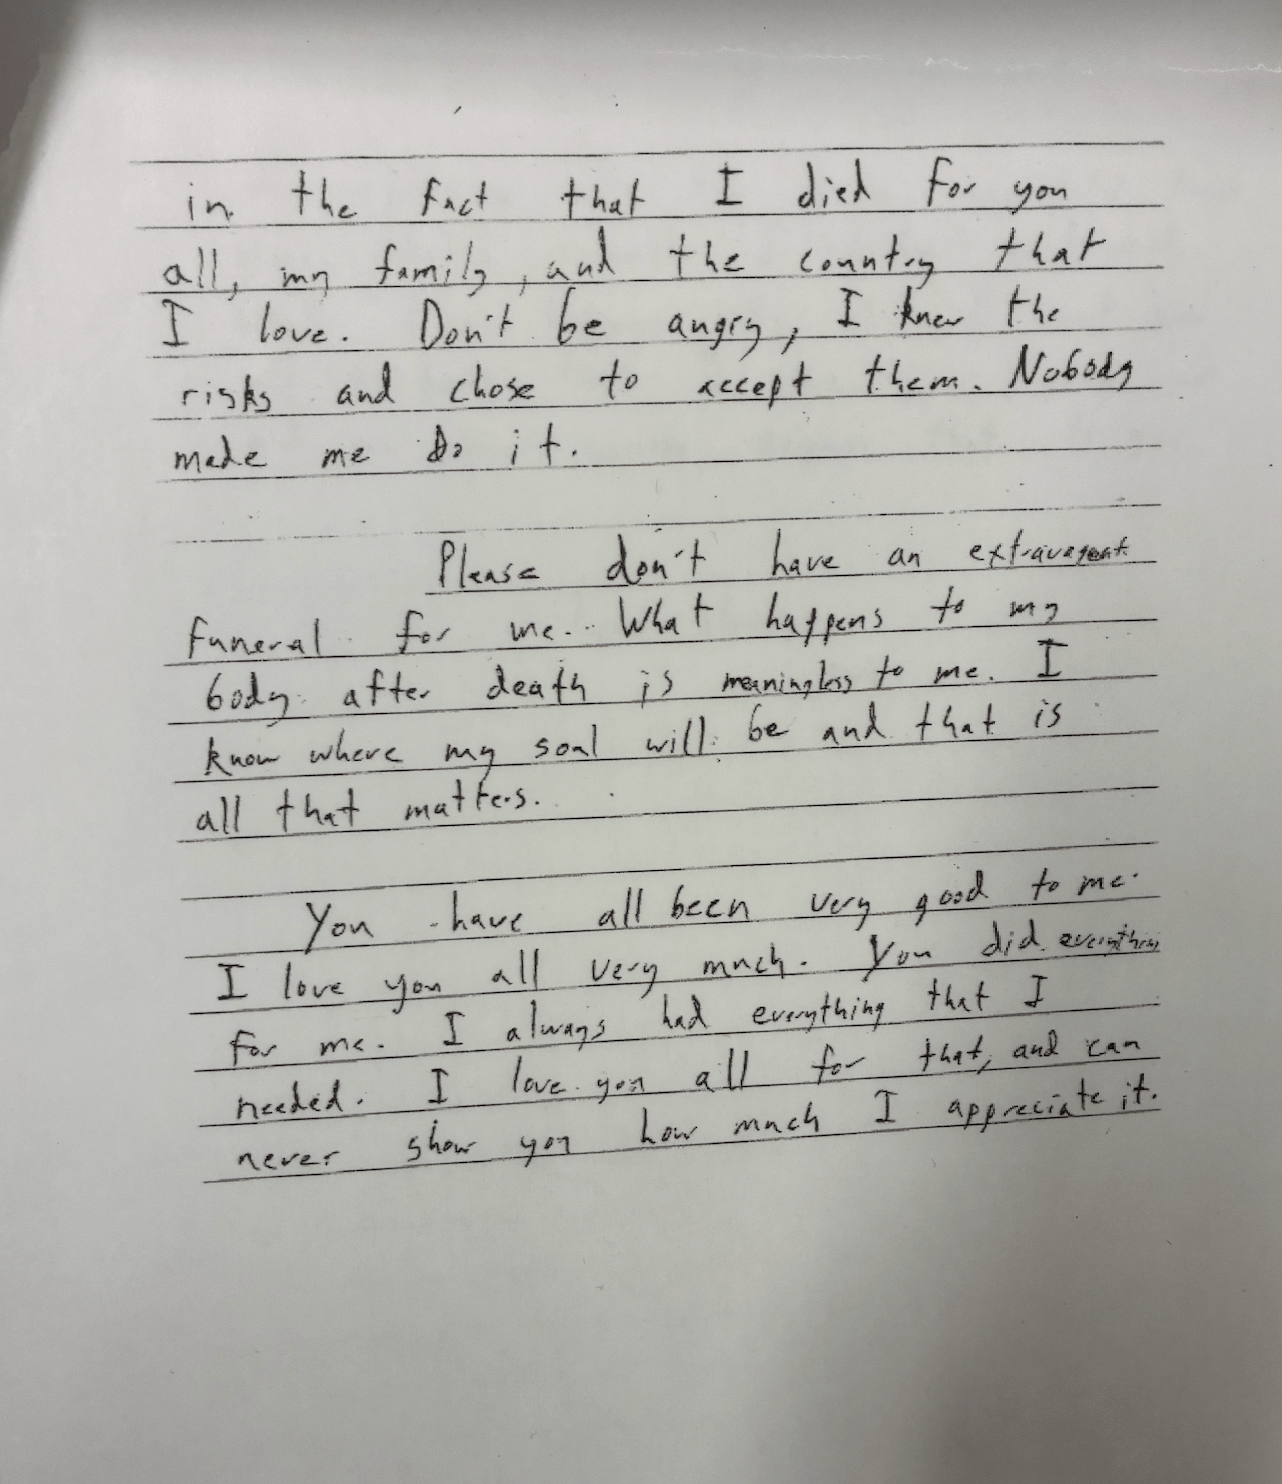 in the fact that I died for you
all, my family, and the country that
I love. Don't be angry, I knew the
risks and chose to accept them. Nobody
made me do it.
Please don't have an extravagent
funeral for me. What happens to my
body after death is meaningless to me. I
know where my soul will be and that is
all that matters.
You have all been very good to me.
I love you all very much. You did everything
for me. I always had everything that I
needed. I love you all for that, and can
never show you how much I appreciate it.